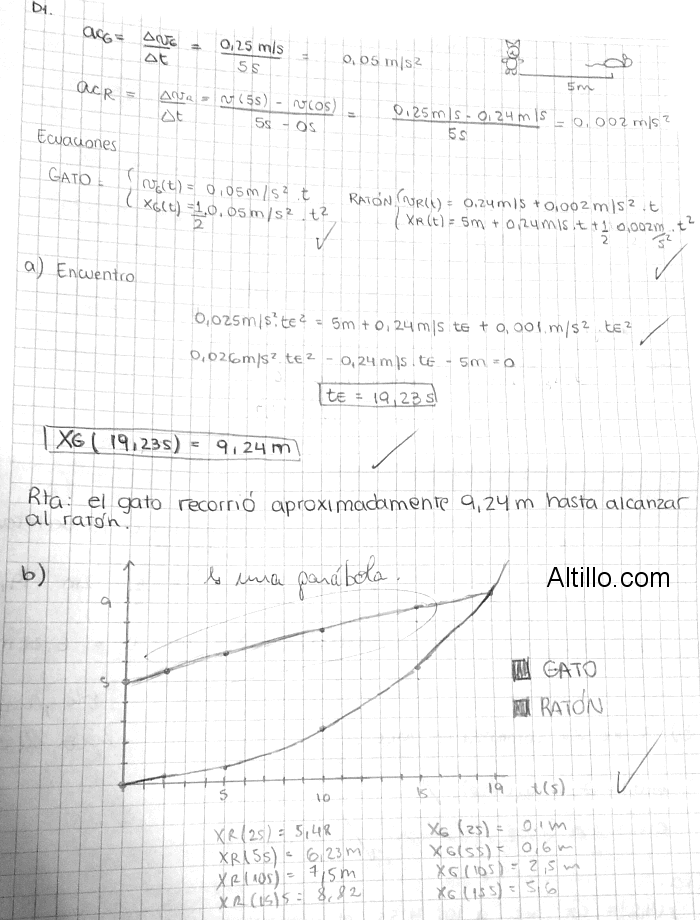 D1.
acG = ΔvG/Δt = 0,25 m/s / 5s = 0,05 m/s²
5m
acR = ΔvR/Δt = v(5s) - v(0s) / 5s - 0s = 0,25m/s - 0,24m/s / 5s = 0,002 m/s²
Ecuaciones
GATO = { vG(t) = 0,05m/s² . t
XG(t) = 1/2 . 0,05m/s² . t²
RATÓN { vR(t) = 0,24m/s + 0,002 m/s² . t
XR(t) = 5m + 0,24m/s . t + 1/2 0,002m/s² . t²
a) Encuentro
0,025m/s² . tE² = 5m + 0,24m/s tE + 0,001 m/s² . tE²
0,026m/s² tE² - 0,24m/s . tE - 5m = 0
tE = 19,23 s
XG ( 19,23s) = 9,24 m
Rta: el gato recorrió aproximadamente 9,24 m hasta alcanzar
al ratón.
b)
Es una parábola.
Altillo.com
9
5
GATO
RATÓN
5 10 15 19 t(s)
XR(2s) = 5,48
XR(5s) = 6,23 m
XR(10s) = 7,5m
XR(15)s = 8,82
XG(2s) = 0,1 m
XG(5s) = 0,6 m
XG(10s) = 2,5 m
XG(15s) = 5,6